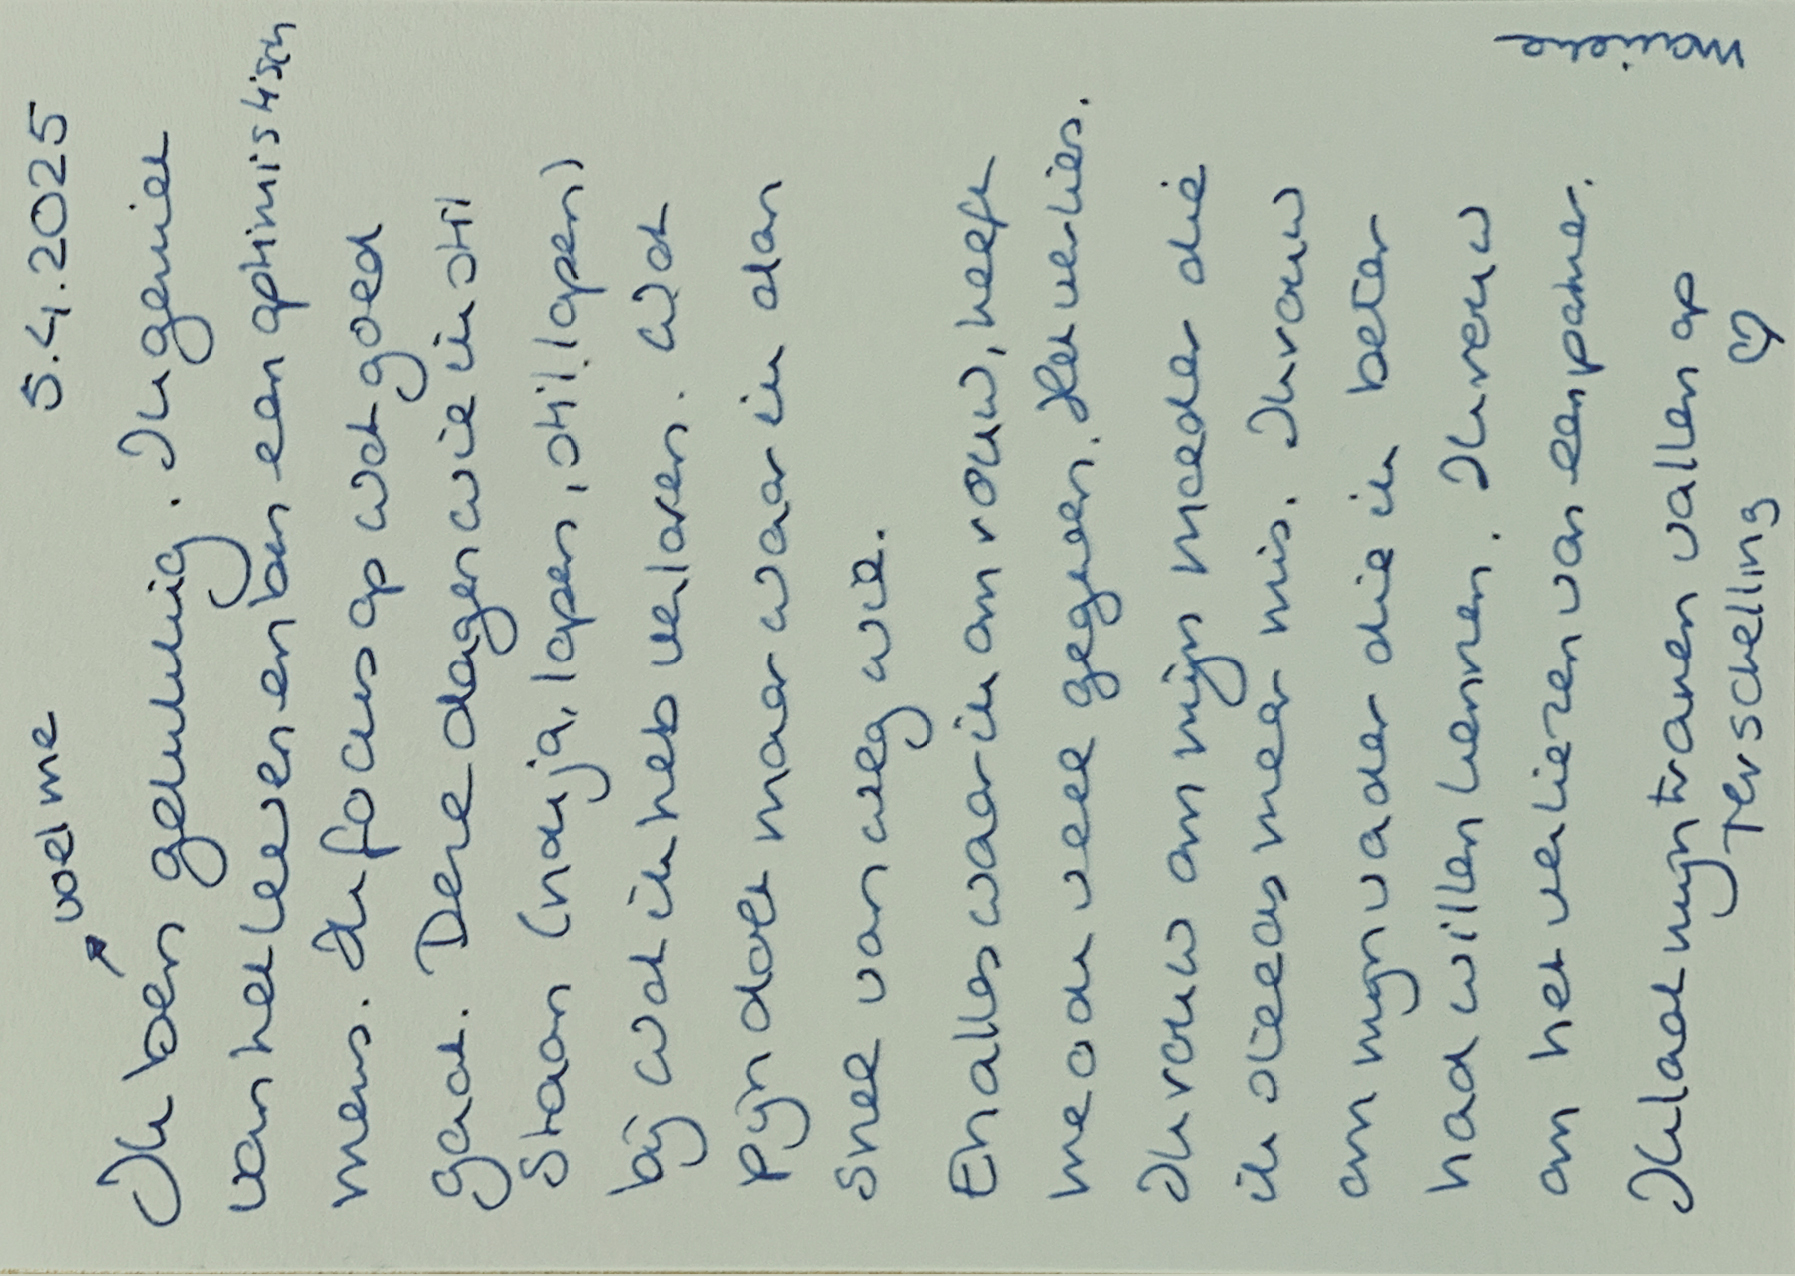 5.4.2025
voel me
Ik ben gelukkig. Ik geniet
van het leven en ben een optimistisch
mens. Ik focus op wat goed
gaat. Deze dagen wil ik stil
staan (nou ja, lopen, stil lopen)
bij wat ik heb verloren. Wat
pijn doet maar waar ik dan
snel van weg wil.
En alles waar ik om rouw, heeft
me ook veel gegeven. Het verlies.
Ik rouw om mijn moeder die
ik steeds meer mis. Ik rouw
om mijn vader die ik beter
had willen kennen. Ik rouw
om het verliezen van een partner.
Ik laat mijn tranen vallen op
Terschelling ♡